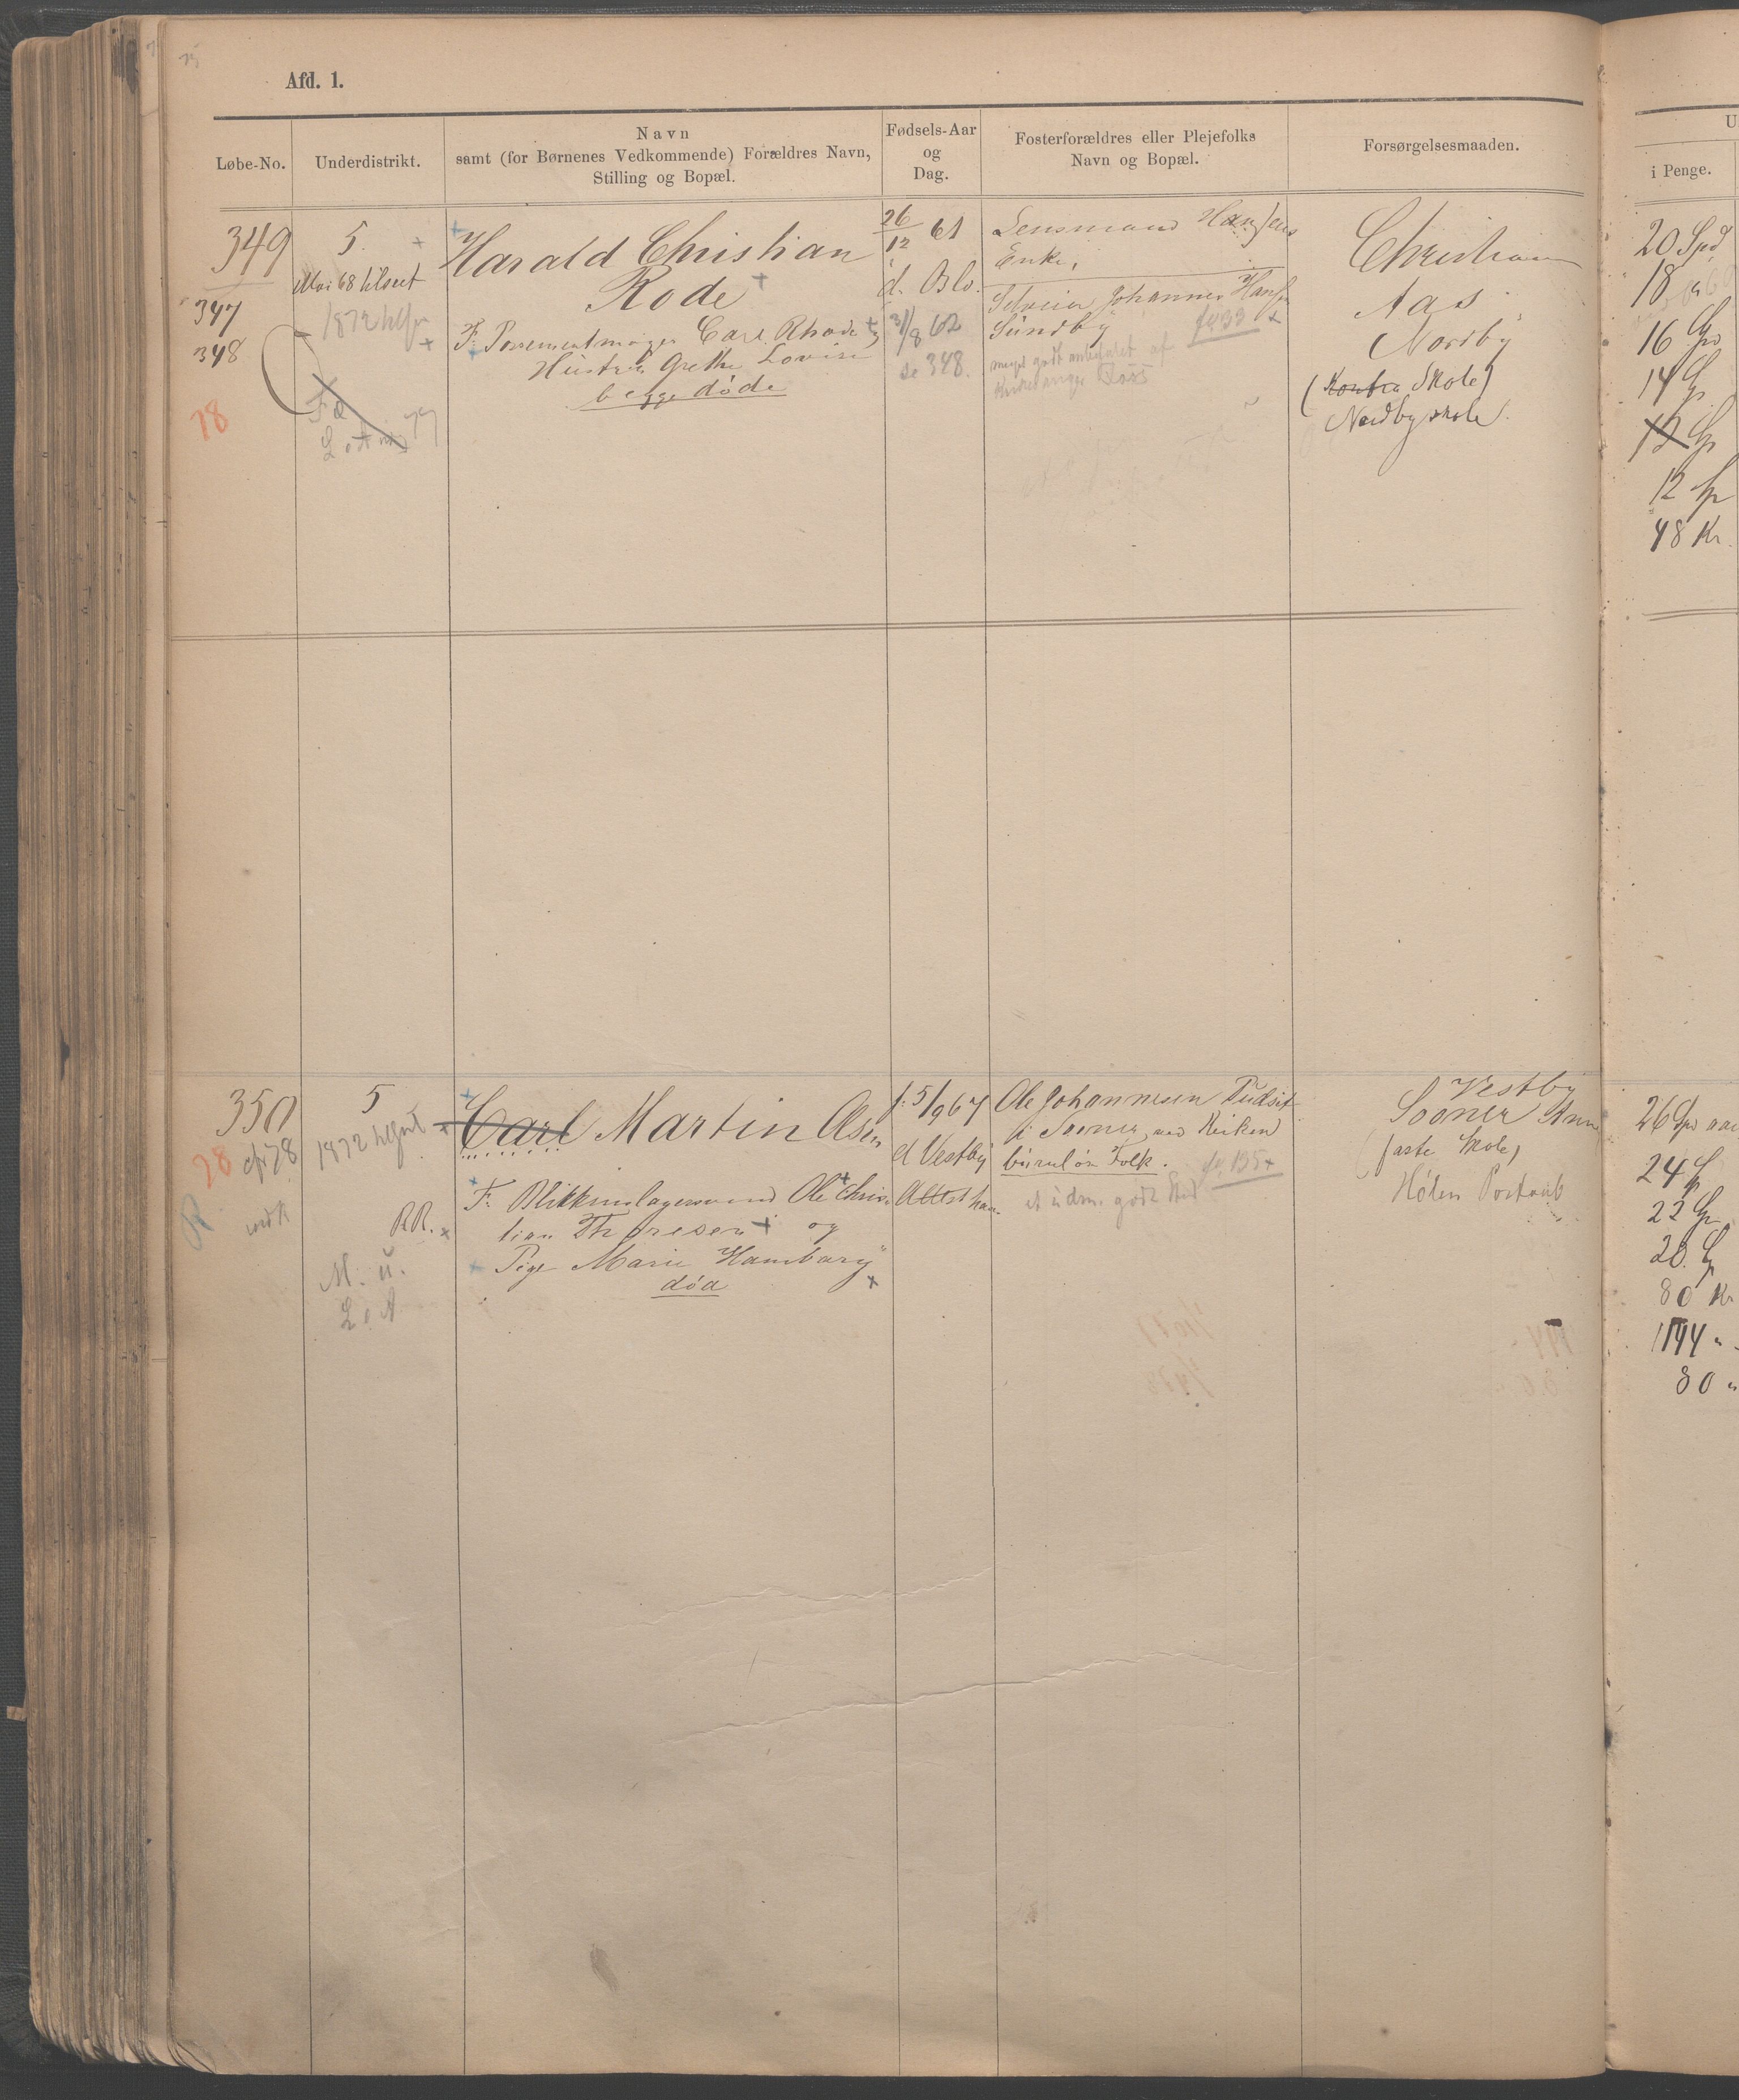 75
Afd. 1.
Løbe-No.
Underdistrikt.
Navn
samt (for Børnenes Vedkommende) Forældres Navn,
Stilling og Bopæl.
Fødsels-Aar
og
Dag.
Fosterforældres eller Plejefolks
Navn og Bopæl.
Forsørgelsesmaaden.
U
i Penge.
349
347
348
78
5.
Mai 68 tilseet
1872
77
Harald Christian
Rode
F. Possementmager Carl Rhode
Hustru Grethe Lovise
begge døde
26/12 61
d. Oslo.
31/8 62
se 348.
Lensmand Hansens
Enke,
Selveier Johannes Hansen
Sundby
meget godt anbefalet af
Christian
Aas
Nordby
(Kontra Skole)
Nordby skole.
20 Spd
18
16 Sp
14 Sp
12 Sp
12 Sp
48 Kr.
350
78
R
5
1872
RR.
M. u.
L. A
Carl Martin Olsen
F. Blikkenslagersvend Ole Chris
tian Thoresen og
Pige Marie Hamborg
død
f. 5/9 67
d Vestby
Attest han
Ole Johannesen Pudsit
i Sooner, ved Kirken
barnløse Folk. 135
et udm. godt Sted
Vestby
Sooner Ann
faste Skole,
Hølen Postaab
26 Spd aar
24 Sp
22 Sp
20. Sp
80 Kr
144 "
80 "